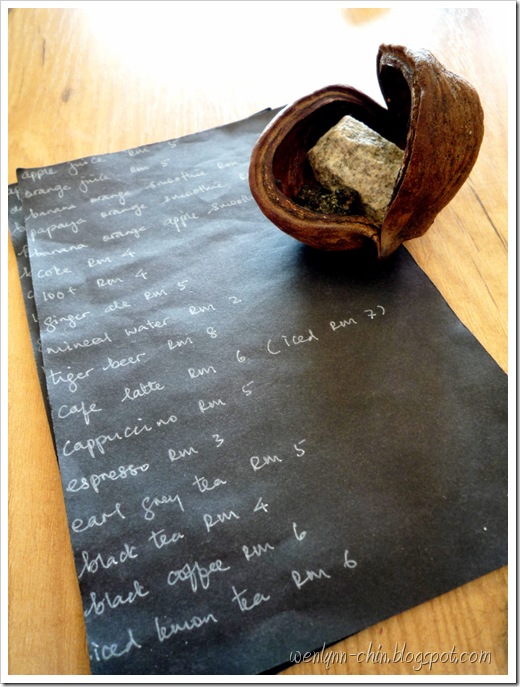 apple juice RM 5
orange juice RM 5
banana orange smoothie RM
papaya orange smoothie
banana orange apple smoothie
coke RM 4
100+ RM 4
ginger ale RM 5
mineral water RM 2
tiger beer RM 8
cafe latte RM 6 (iced RM 7)
cappuccino RM 5
espresso RM 3
earl grey tea RM 5
black tea RM 4
black coffee RM 6
iced lemon tea RM 6
wenlynn-chin.blogspot.com